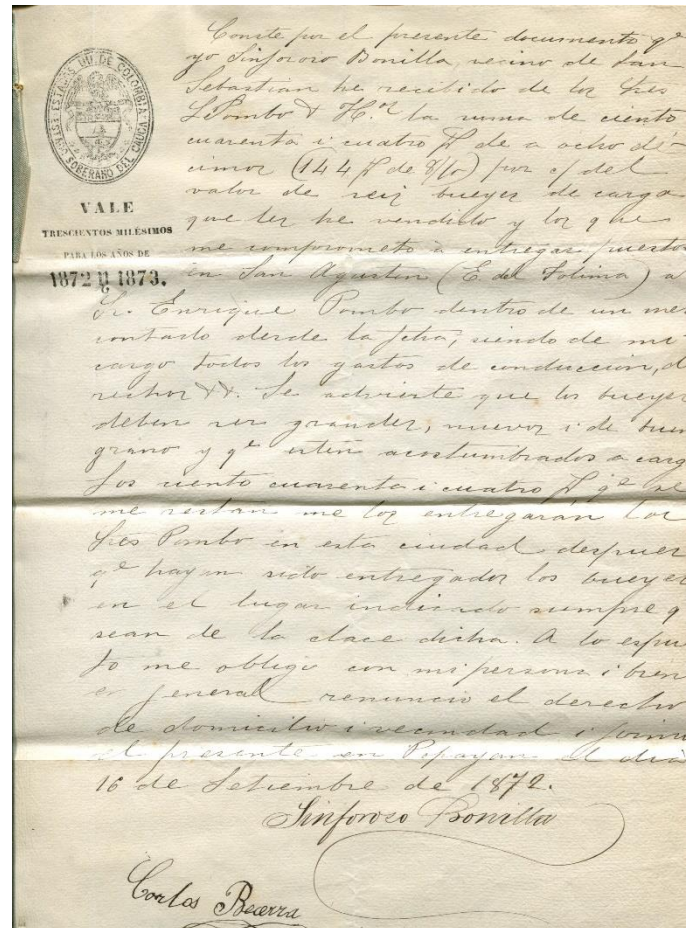 ESTADOS UU. DE COLOMBIA
ESTADO SOBERANO DEL CAUCA
VALE
TRESCIENTOS MILÉSIMOS
PARA LOS AÑOS DE
1872 y 1873.
Conste por el presente documento qe
yo Sinforoso Bonilla, vecino de San
Sebastian he recibido de los Sres
L Pombo & Hn la suma de ciento
cuarenta i cuatro $ de a ocho dé-
cimos (144 $ de 8/10) por c/ del
valor de seis bueyes de carga
que les he vendido y los que
me comprometo a entregar puestos
en San Agustin (E. del Tolima) a
Sr. Enrique Pombo dentro de un mes
contado desde la fcha, siendo de mi
cargo todos los gastos de conduccion, d
rechos &&. Se advierte que los bueyes
deben ser grandes, nuevos i de buen
y qe estén acostumbrados a carg
Los ciento cuarenta i cuatro $ qe se
me restan me los entregarán los
Sres Pombo en esta ciudad despues
qe hayan sido entregados los bueyes
en el lugar indicado siempre q
sean de la clace dicha. A lo espu
to me obligo con mi persona i bien
en jeneral renuncio el derecho
de domicilio i vecindad i firmo
el presente en Popayan el dia
16 de Setiembre de 1872.
Sinforoso Bonilla
Carlos Becerra